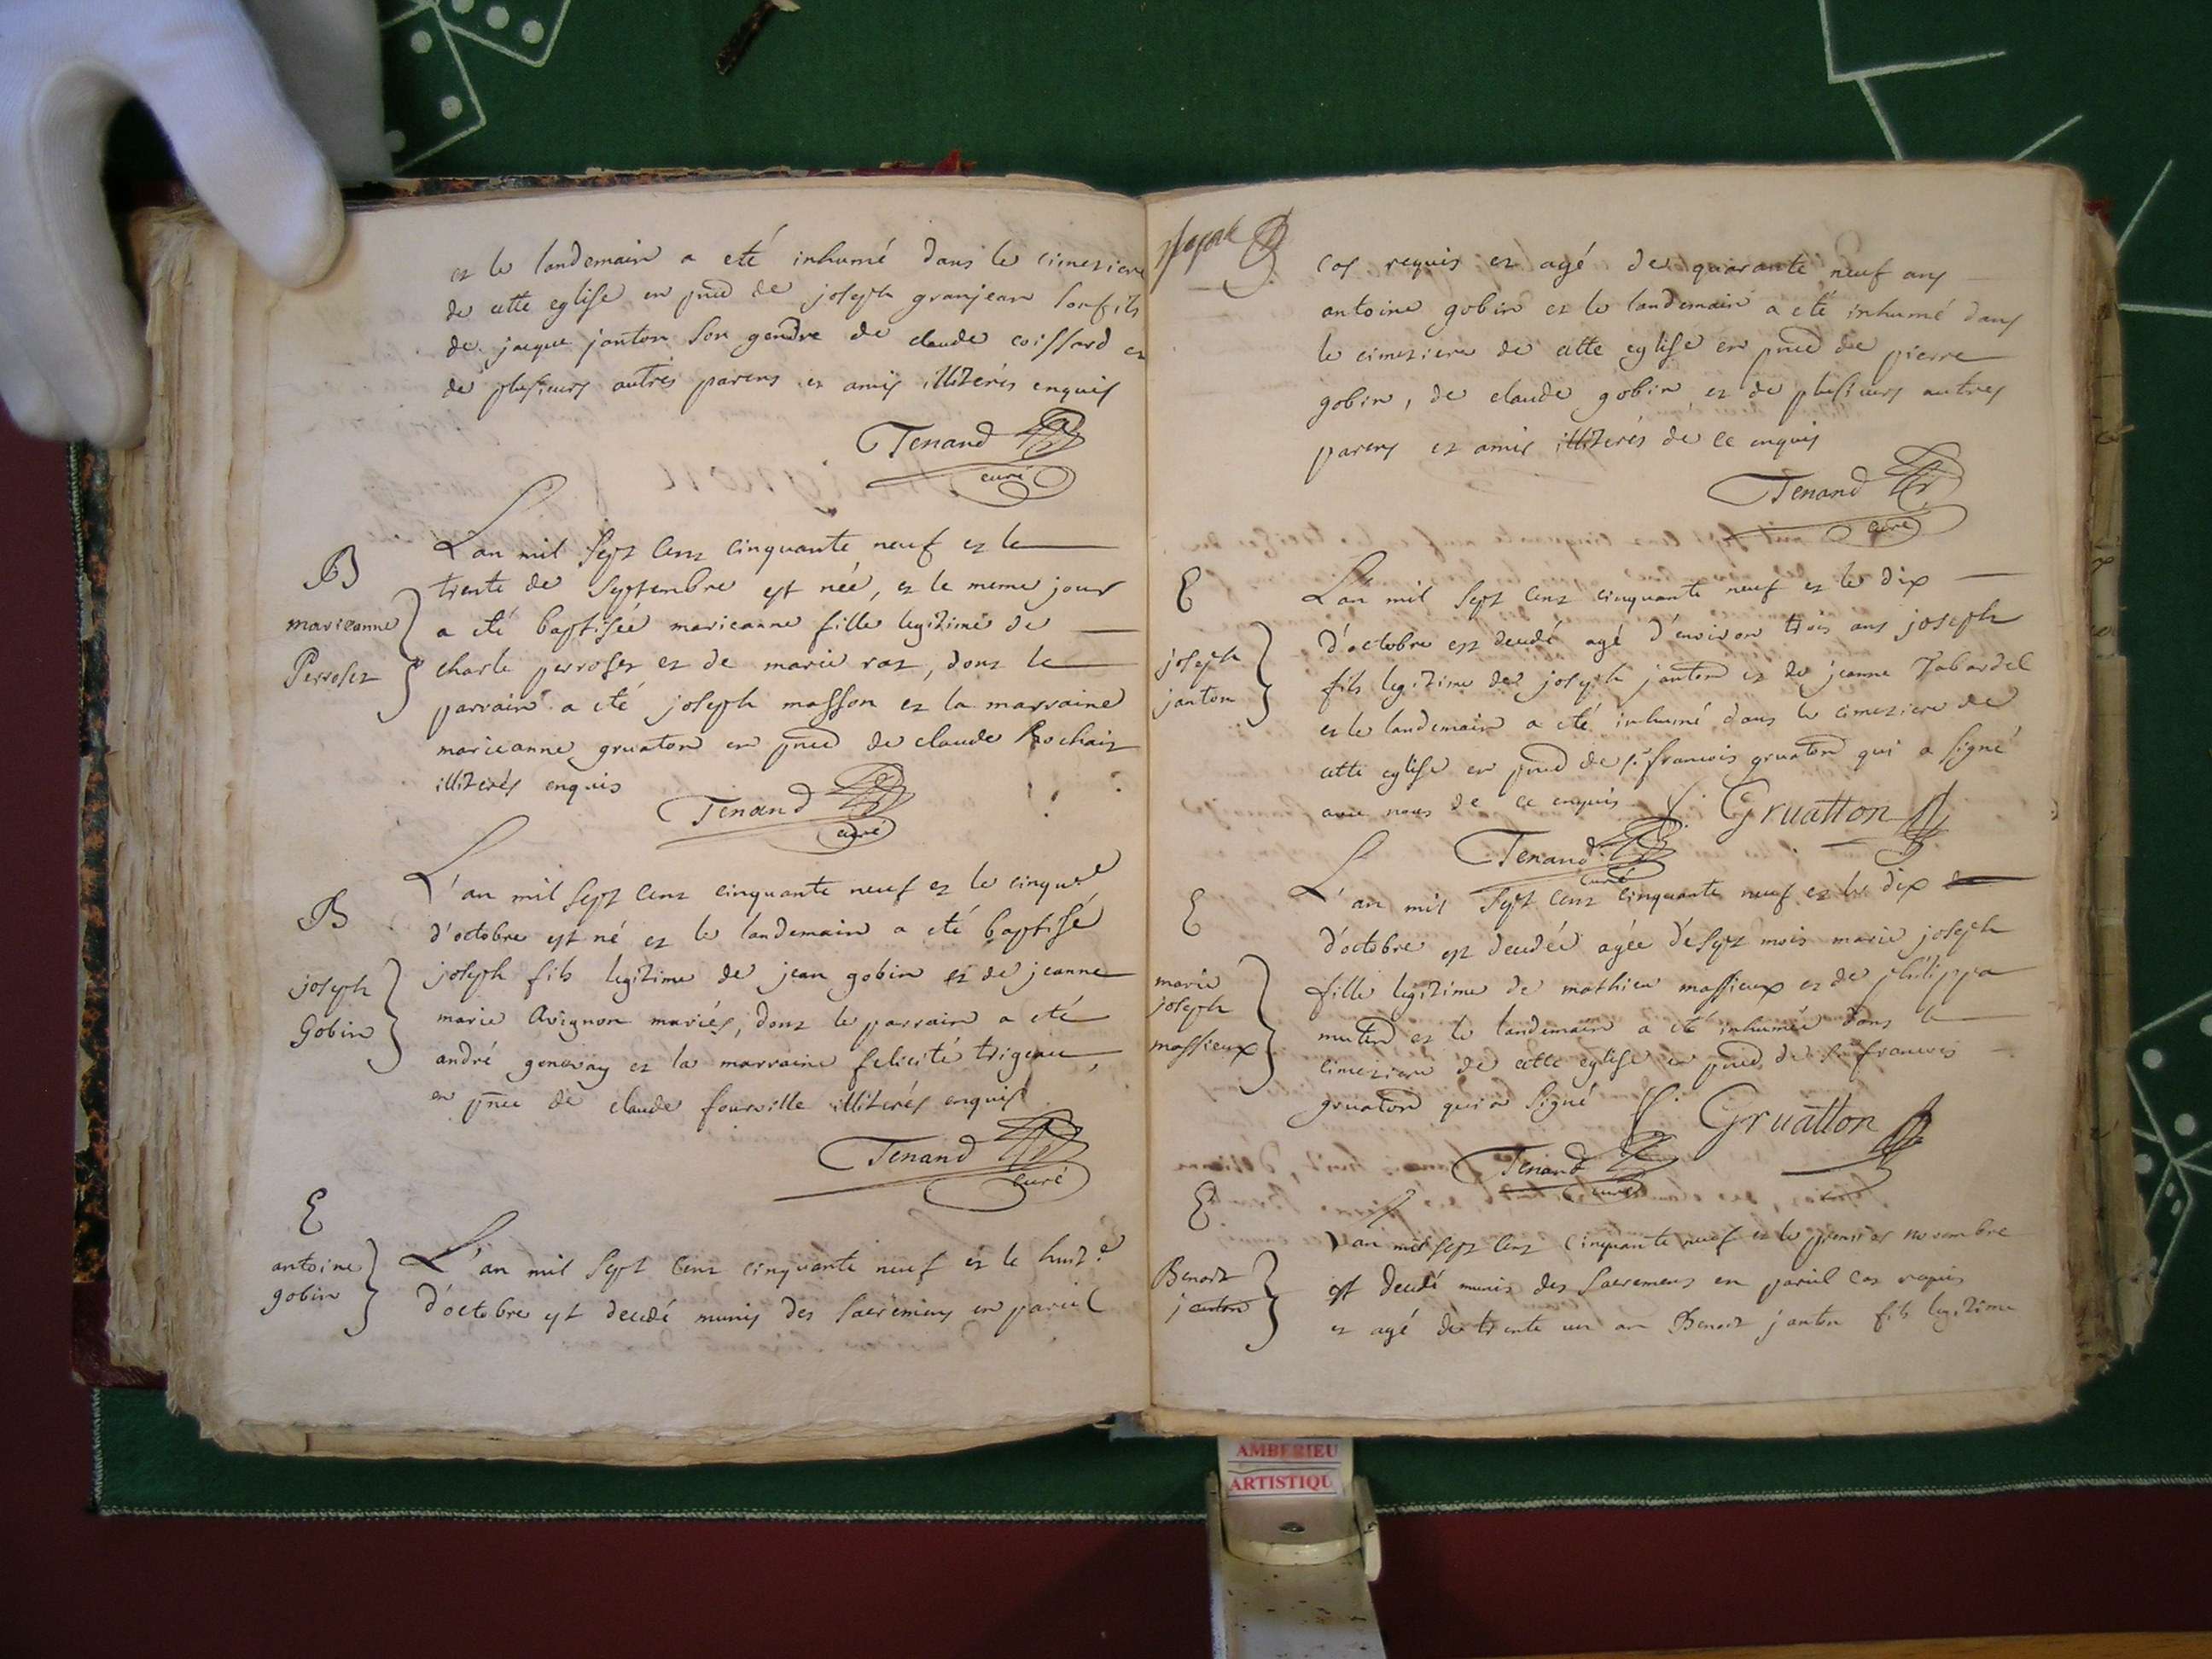 et le landemain a eté inhumé dans le cimetiere
de cette eglise en pnce de joseph granjean son fils
de jacque janton son gendre de claude coissard et
de plusieurs autres parens et amis illiterés enquis
Tenand
curé
B
marieanne
Perroset
L'an mil sept cent cinquante neuf et le
trente de septembre est née, et le meme jour
a eté baptisée marieanne fille legitime de
charle perroset et de marie rat, dont le
parrain a eté joseph masson et la marraine
marieanne gruaton en pnce de claude Rochait
illiterés enquis
Tenand
curé
B
joseph
Gobin
L'an mil sept cent cinquante neuf et le cinque
d'octobre est né et le landemain a eté baptisé
joseph fils legitime de jean gobin et de jeanne
marie Avignon mariés, dont le parrain a eté
andré genevay et la marraine felicité trigeau,
en pnce de claude fourville illiterés enquis
Tenand
curé
E
antoine
gobin
L'an mil sept cent cinquante neuf et le huite
d'octobre est decedé munis des sacremens en pareil
cas requis et agé de quarante neuf ans
antoine gobin et le landemain a eté inhumé dans
le cimetiere de cette eglise en pnce de pierre
gobin, de claude gobin et de plusieurs autres
parens et amis illiterés de ce enquis
Tenand
curé
E
joseph
janton
L'an mil sept cent cinquante neuf et le dix
d'octobre est decedé agé d'environ trois ans joseph
fils legitime de joseph janton et de jeanne Tabardel
et le landemain a eté inhumé dans le cimetiere de
cette eglise en pnce de sr francois gruaton qui a signé
avec nous de ce enquis
f. Gruatton
Tenand
curé
E
marie
joseph
massieux
L'an mil sept cent cinquante neuf et le dix
d'octobre est decedée agée de sept mois marie joseph
fille legitime de mathieu massieux et de philippa
mutin et le landemain a eté inhumée dans le
cimetiere de cette eglise en pnce de sr francois
gruaton qui a signé
f. Gruatton
Tenand
curé
E
Benoit
janton
L'an mil sept cent cinquante neuf et le premier novembre
est decedé munis des sacremens en pareil cas requis
et agé de trente un an Benoit janton fils legitime
AMBERIEU
ARTISTIQU